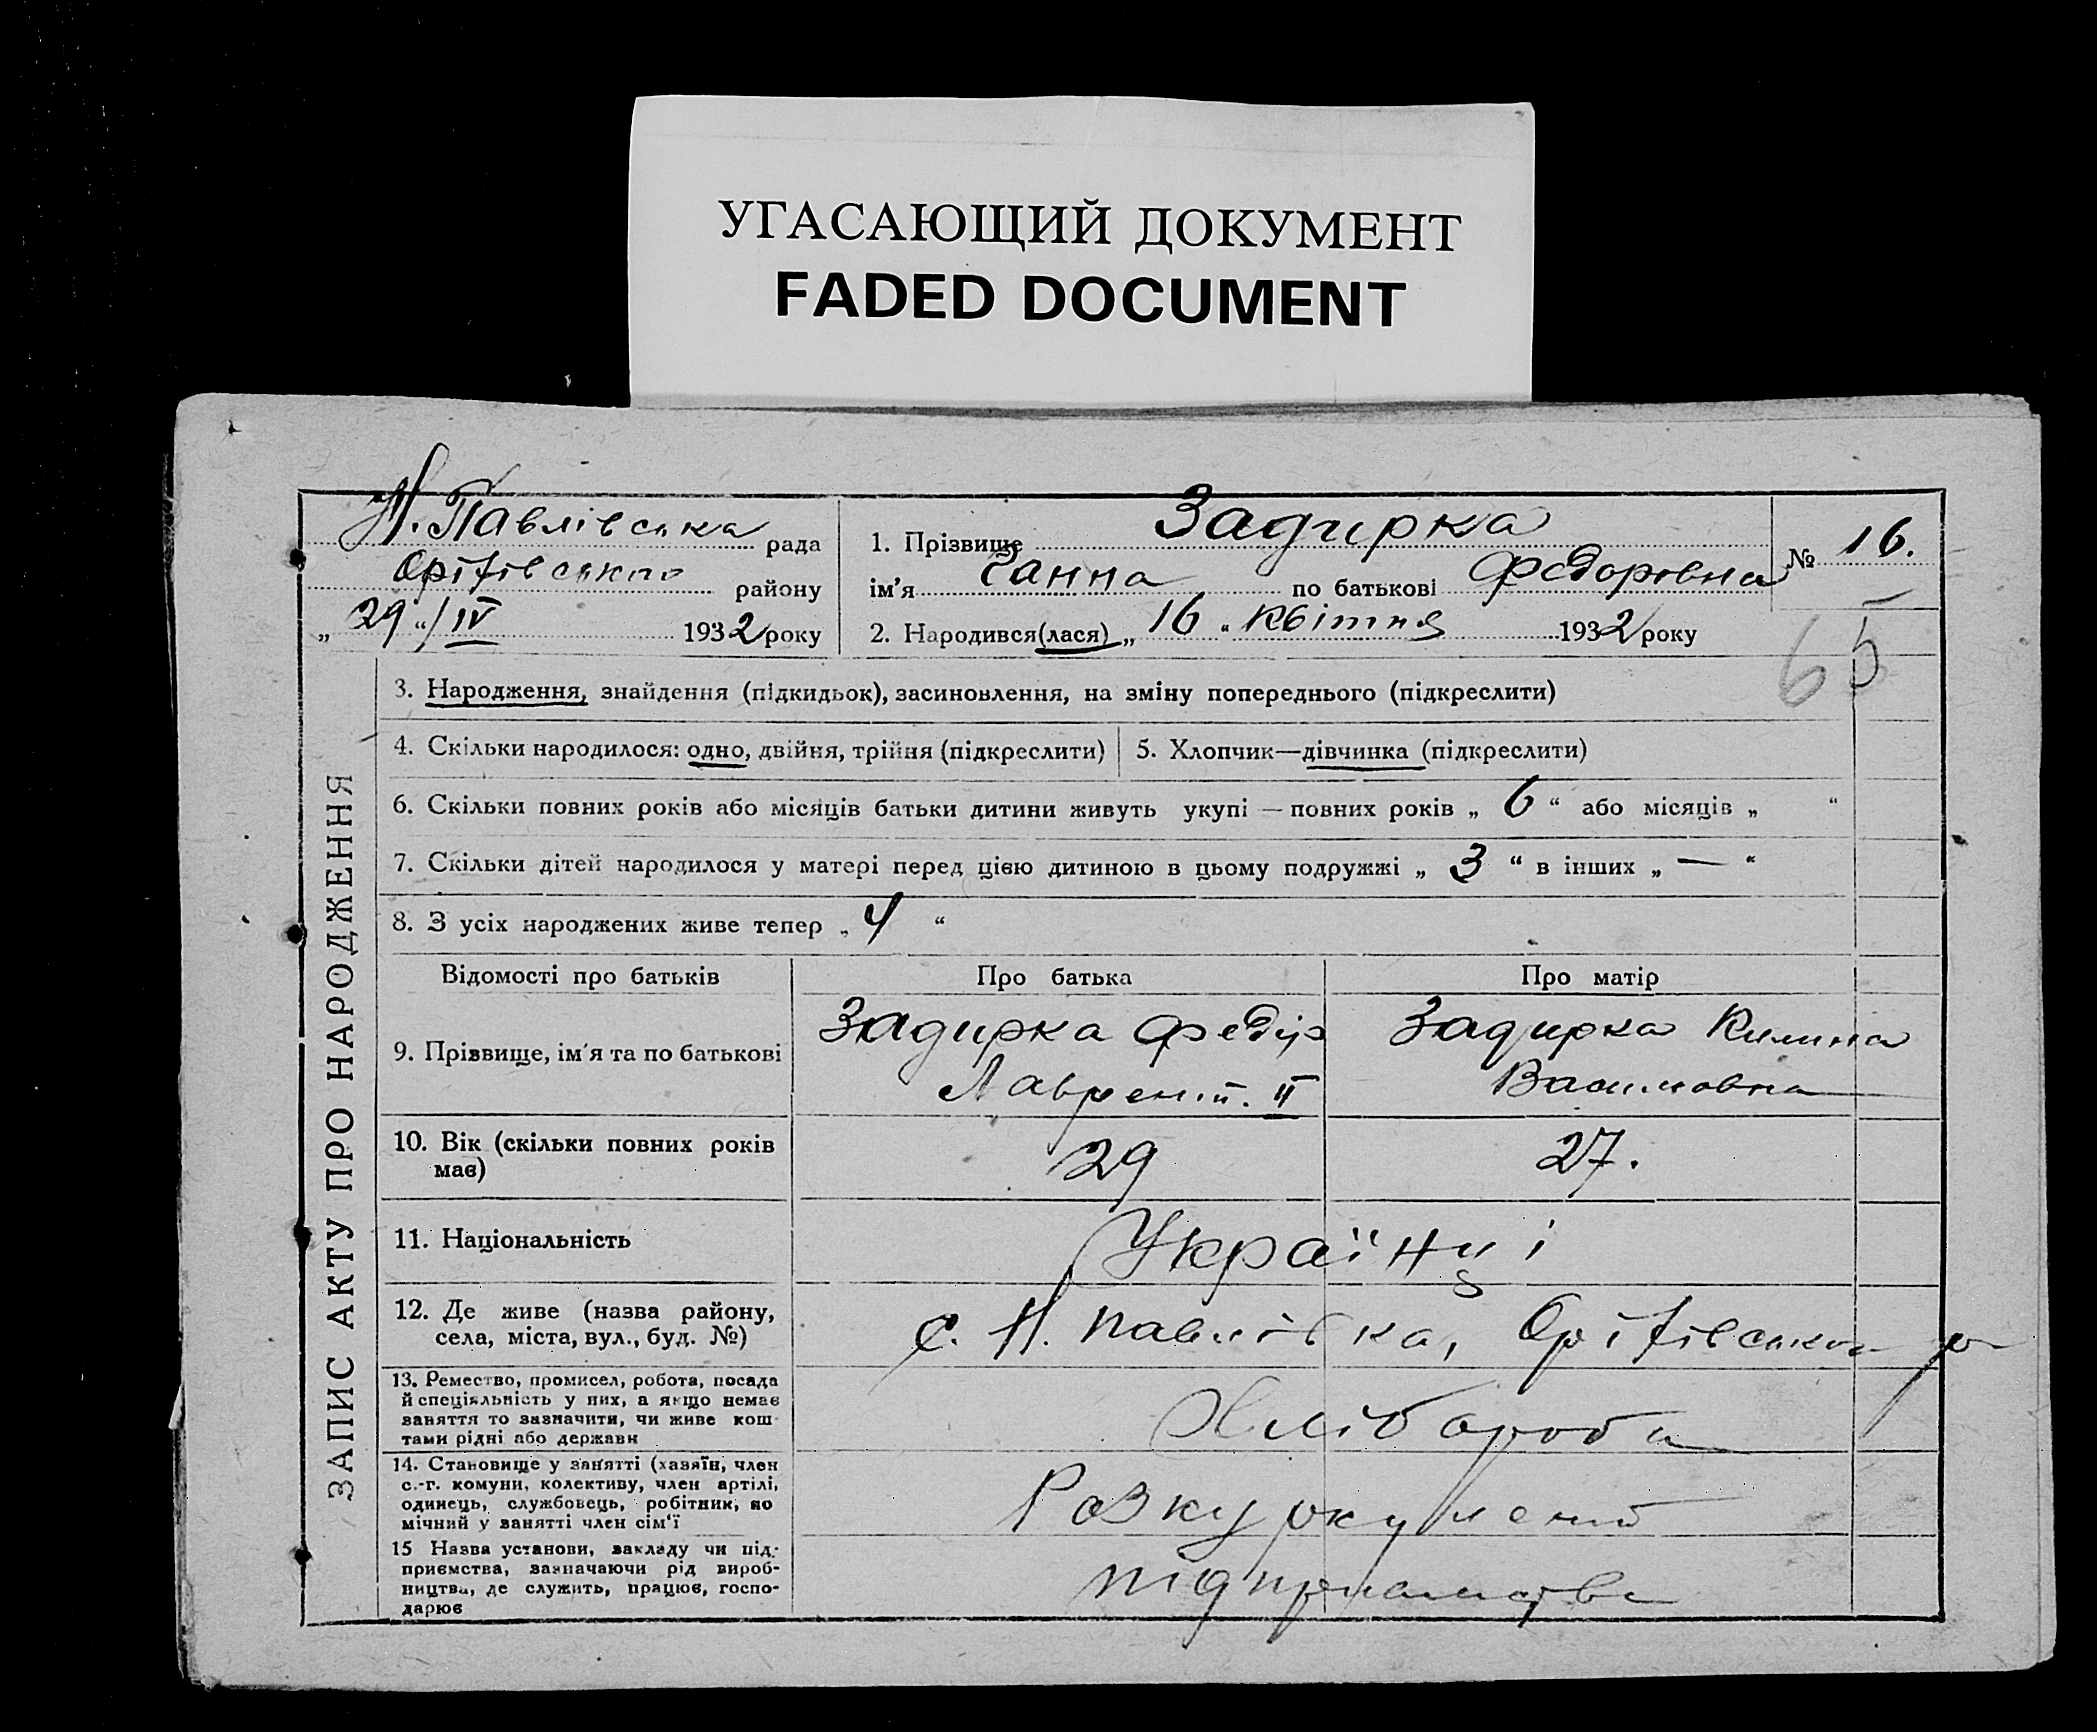 УГАСАЮЩИЙ ДОКУМЕНТ
FADED DOCUMENT
Н. Павлівська рада
Оріхівського району
„ 29 “/ IV 1932 року
1. Прізвище Задирка
ім'я Ганна по батькові Федоровна
2. Народився(лася) „ 16 “ квітня 1932 року
№ 16.
65
ЗАПИС АКТУ ПРО НАРОДЖЕННЯ
3. Народження, знайдення (підкидьок), засиновлення, на зміну попереднього (підкреслити)
4. Скільки народилося: одно, двійня, трійня (підкреслити)
5. Хлопчик—дівчинка (підкреслити)
6. Скільки повних років або місяців батьки дитини живуть укупі — повних років „ 6 “ або місяців „ “
7. Скільки дітей народилося у матері перед цією дитиною в цьому подружжі „ 3 “ в інших „ — “
8. З усіх народжених живе тепер „ 4 “
Відомості про батьків Про батька Про матір
9. Прізвище, ім'я та по батькові
Задирка Федір
Лаврентій. II
Задирка Килина
Василовна
10. Вік (скільки повних років
має)
29
27.
11. Національність
Українці
12. Де живе (назва району,
села, міста, вул., буд. №)
с. Н. Павлівка, Оріхівського р
13. Ремество, промисел, робота, посада
й спеціяльність у них, а якщо немає
заняття то зазначити, чи живе кош-
тами рідні або держави
Хлібороби
14. Становище у занятті (хазяїн, член
с.-г. комуни, колективу, член артілі,
одинець, службовець, робітник,
мічний у занятті член сім'ї
Розкуркулений
15 Назва установи, закладу чи під-
приємства, зазначаючи рід вироб-
ництва, де служить, працює, госпо-
дарює